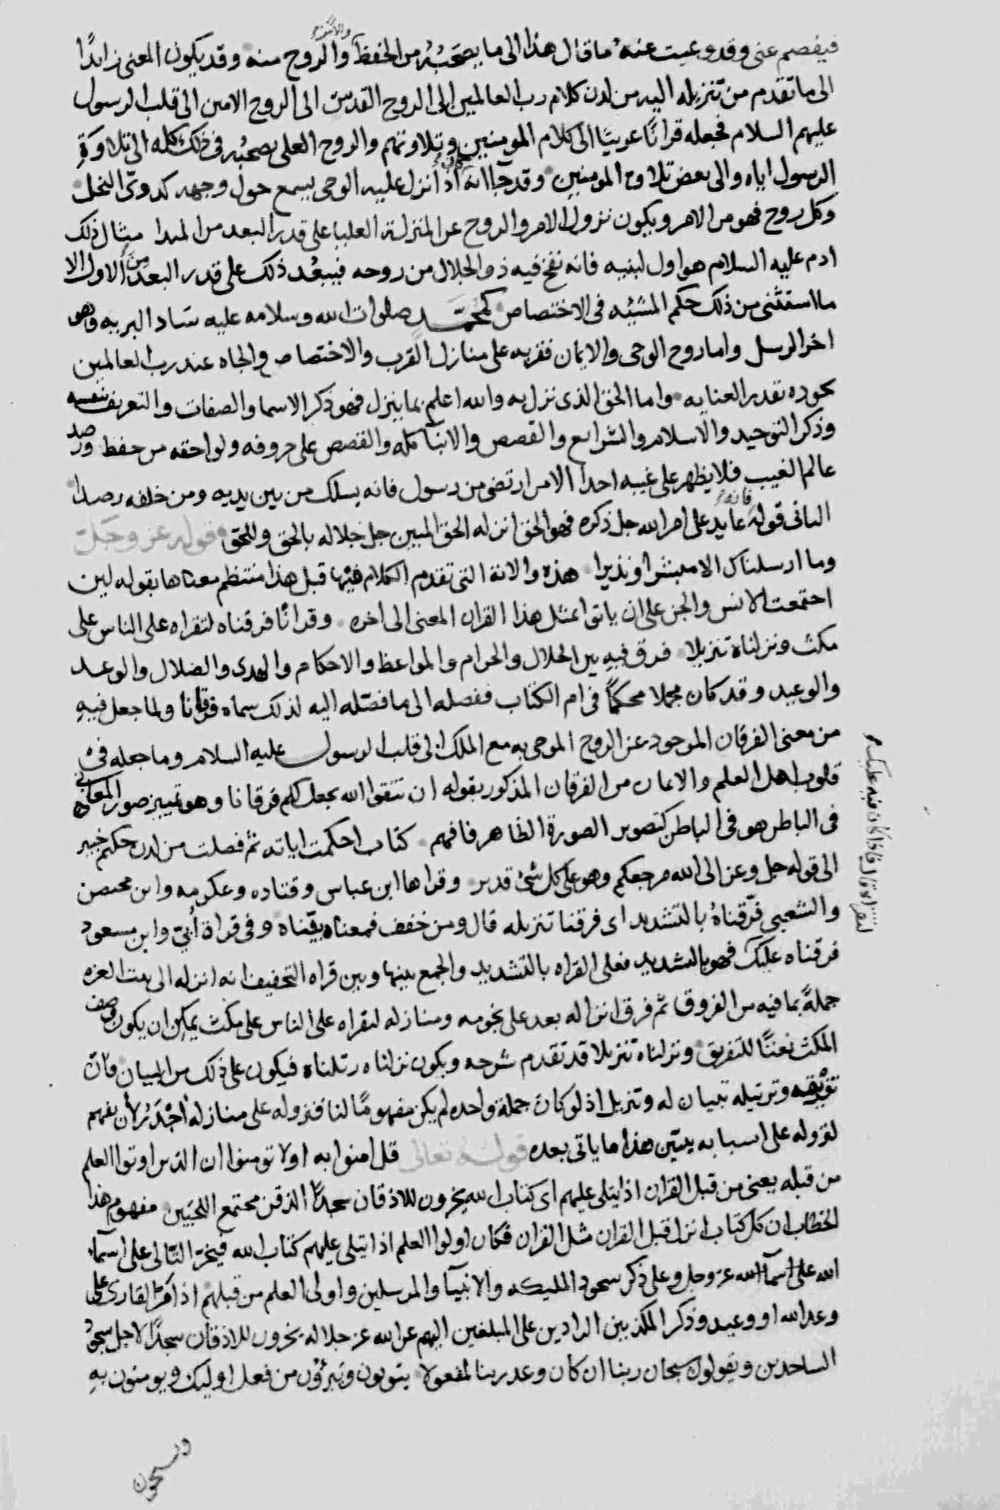 فيفصم عني وقد وعيت عنه ما قال هذا الى ما يصحبه من الحفظة والروح منه وقد يكون المعنى زائدًا
الى ما تقدم من تنزيله اليه من لدن كلام رب العالمين الى الروح القدس الى الروح الامين الى قلب الرسول
عليهم السلام فجعله قرانًا عربيًا الى كلام المومنين وتلاوتهم والروح العلى يصحبه في ذلك كله الى تلاوة
الرسول اياه والى بعض تلاوة المومنين وقد جا انه كان اذا انزل عليه الوحي يسمع حول وجهه كدوي النحل
وكل روح فهو من الامر ويكون نزول الامر والروح عن المنزلة العليا على قدر البعد من المبدا مثال ذلك
ادم عليه السلام هو اول لبنيه فانه نفخ فيه ذو الجلال من روحه فيبعد ذلك على قدر البعد من الاول الا
ما استثنى من ذلك حكم المشيئه في الاختصاص كمحمد صلوات الله وسلامه عليه ساد البريه وهو
اخر الرسل واما روح الوحي والايمان فقربه على منازل القرب والاختصاص والجاه عند رب العالمين
بجوده بقدر العنايه واما الحق الذي نزل به والله اعلم بما ينزل فهو ذكر الاسما والصفات والتعريف بنفسه
وذكر التوحيد والاسلام والشرايع والقصص والانبآ كله والقصص على حروفه ولواحقه من حفظ ورصد
عالم الغيب فلا يظهر على غيبه احدا الا من ارتضى من رسول فانه يسلك من بين يديه ومن خلفه رصدا
الثاني قوله فانه عايد على امر الله جل ذكره فهو الحق انزله الحق المبين جل جلاله بالحق وللحق وقوله عز وجل
وما ارسلناك الا مبشرا ونذيرا هذه والاية التي تقدم الكلام فيها قبل هذا منتظم معناها بقوله لين
اجتمعت الانس والجن على ان ياتوا بمثل هذا القران المعنى الى اخره وقرانًا فرقناه لتقراه على الناس على
مكث ونزلناه تنزيلا فرق فيه بين الحلال والحرام والمواعظ والاحكام والهدى والضلال والوعد
والوعيد وقد كان مجملا محكمًا في ام الكتاب ففصله الى ما فصّله اليه لذلك سماه فرقانا ولما جعل فيه
من معنى الفرقان الموجود عن الروح الموحى به مع الملك الى قلب الرسول عليه السلام وما جعله في
قلوب اهل العلم والايمان من الفرقان المذكور بقوله ان تتقوا الله يجعل لكم فرقانا وهو تمييز صور المعاني
في الباطن هو في الباطن كتصوير الصورة الظاهر فافهم كتاب احكمت اياته ثم فصلت من لدن حكيم خبير
الى قوله جل وعز الى الله مرجعكم وهو على كل شئ قدير وقراها ابن عباس وقتاده وعكرمه وابن محيصن
والشعبي فرّقناهُ بالتشديد اى فرقنا تنزيله قال ومن خفف فمعناه بيّناه وفي قراة أُبيّ وابن مسعود
فرقناه عليك فهو بالتشديد فعلى القراه بالتشديد والجمع بينها وبين قراه التخفيف انه انزله الى بيت العزه
جملةً بما فيه من الفروق ثم فرق انزاله بعد على نجومه ومنازله لتقراه على الناس على مكث يمكن ان يكون وصف
المكث نعتًا للتفريق ونزلناه تنزيلا قد تقدم شرحه ويكون نزلناه رتلناه فيكون على ذلك من البيان وكان
تفريقه وترتيله تبيان له وتنزيل اذ لو كان جملة واحده لم يكن مفهومًا لنا فنزوله على منازله اجدر لان يفهم
لنزوله على اسبابه يبين هذا ما ياتي بعده قوله تعالى قل امنوا به او لا تومنوا ان الذين اوتوا العلم
من قبله يعني من قبل القران اذا يتلى عليهم اى كتاب الله يخرون للاذقان سجدًا الذقن مجتمع اللحيين مفهوم هذا
الخطاب ان كل كتاب انزل قبل القران مثل القران فكان اولوا العلم اذا يتلى عليهم كتاب الله فيخر التالي على اسمآء
الله على اسمآ الله عز وجل وعلى ذكر سجود المليكه والانبيآ والمرسلين واولى العلم من قبلهم اذا مر القارى على
وعد الله او وعيد وذكر المكذبين الرادين على المبلغين اليهم عن الله عز جلاله يخرون للاذقان سجدًا لاجل سجود
الساجدين ويقولون سبحان ربنا ان كان وعد ربنا لمفعولا يتوبون وتبرؤن من فعل اوليك ويومنون به